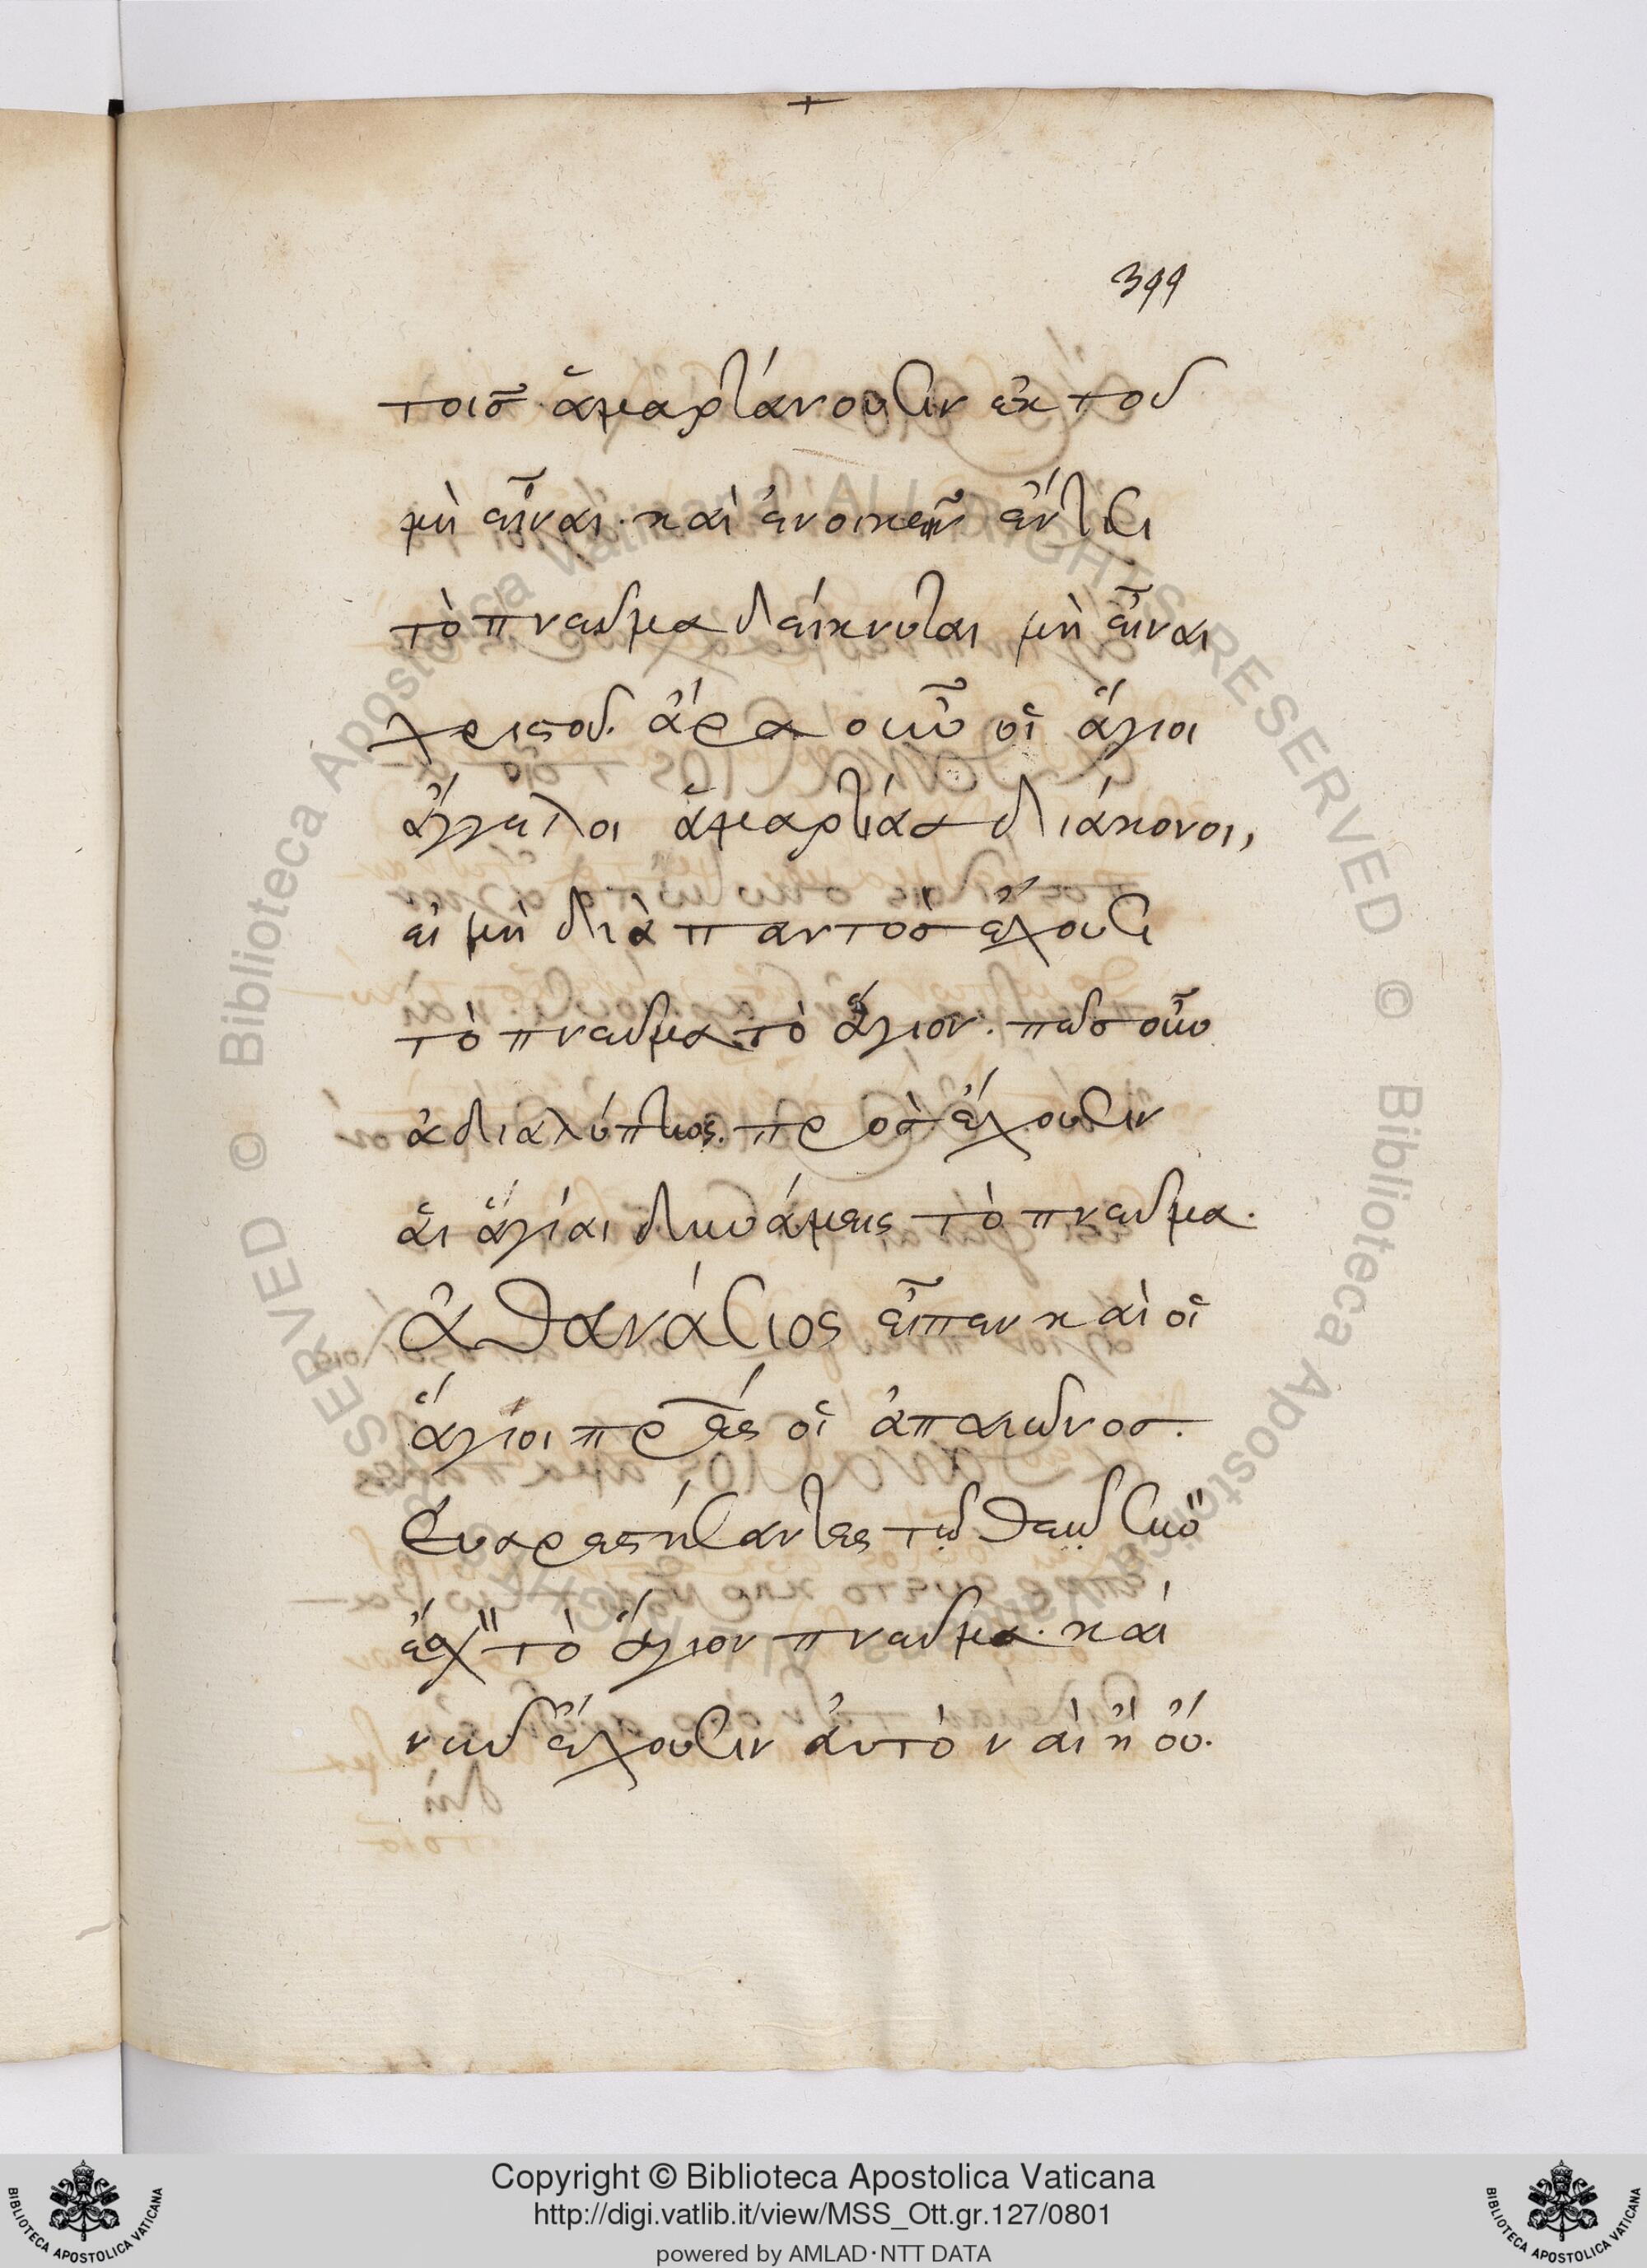 399
τοῖσ ἁμαρτάνουσιν ἐκ τοῦ
μὴ εἶναι· καὶ ἐνοικεῖν ἔν τισι
τὸ πνεῦμα δείκνυται μὴ εἶναι
χριστοῦ. ἄρα οὖν οἱ ἅγιοι
ἄγγελοι ἁμαρτίασ διάκονοι,
εἰ μὴ διὰ παντὸσ ἔχουσι
τὸ πνεῦμα τὸ ἅγιον. πῶσ οὖν
ἀδιαλύπτως. προσέχουσιν
αἱ ἅγίαι δυνάμεις τὸ πνεῦμα.
ἀθανάσιος εἶπεν καὶ οἱ
ἅγιοι πρες οἱ ἀπαιῶνοσ.
Εὐαρεστήσαντες τῷ θεῷ
ἔσχ τὸ ἅγιον πνεῦμα· καὶ
νῦν ἔχουσιν ἀυτὸ ναὶ ἢ οὔ.
Copyright © Biblioteca Apostolica Vaticana
http://digi.vatlib.it/view/MSS_Ott.gr.127/0801
powered by AMLAD·NTT DATA
BIBLIOTECA APOSTOLICA VATICANA
BIBLIOTECA APOSTOLICA VATICANA